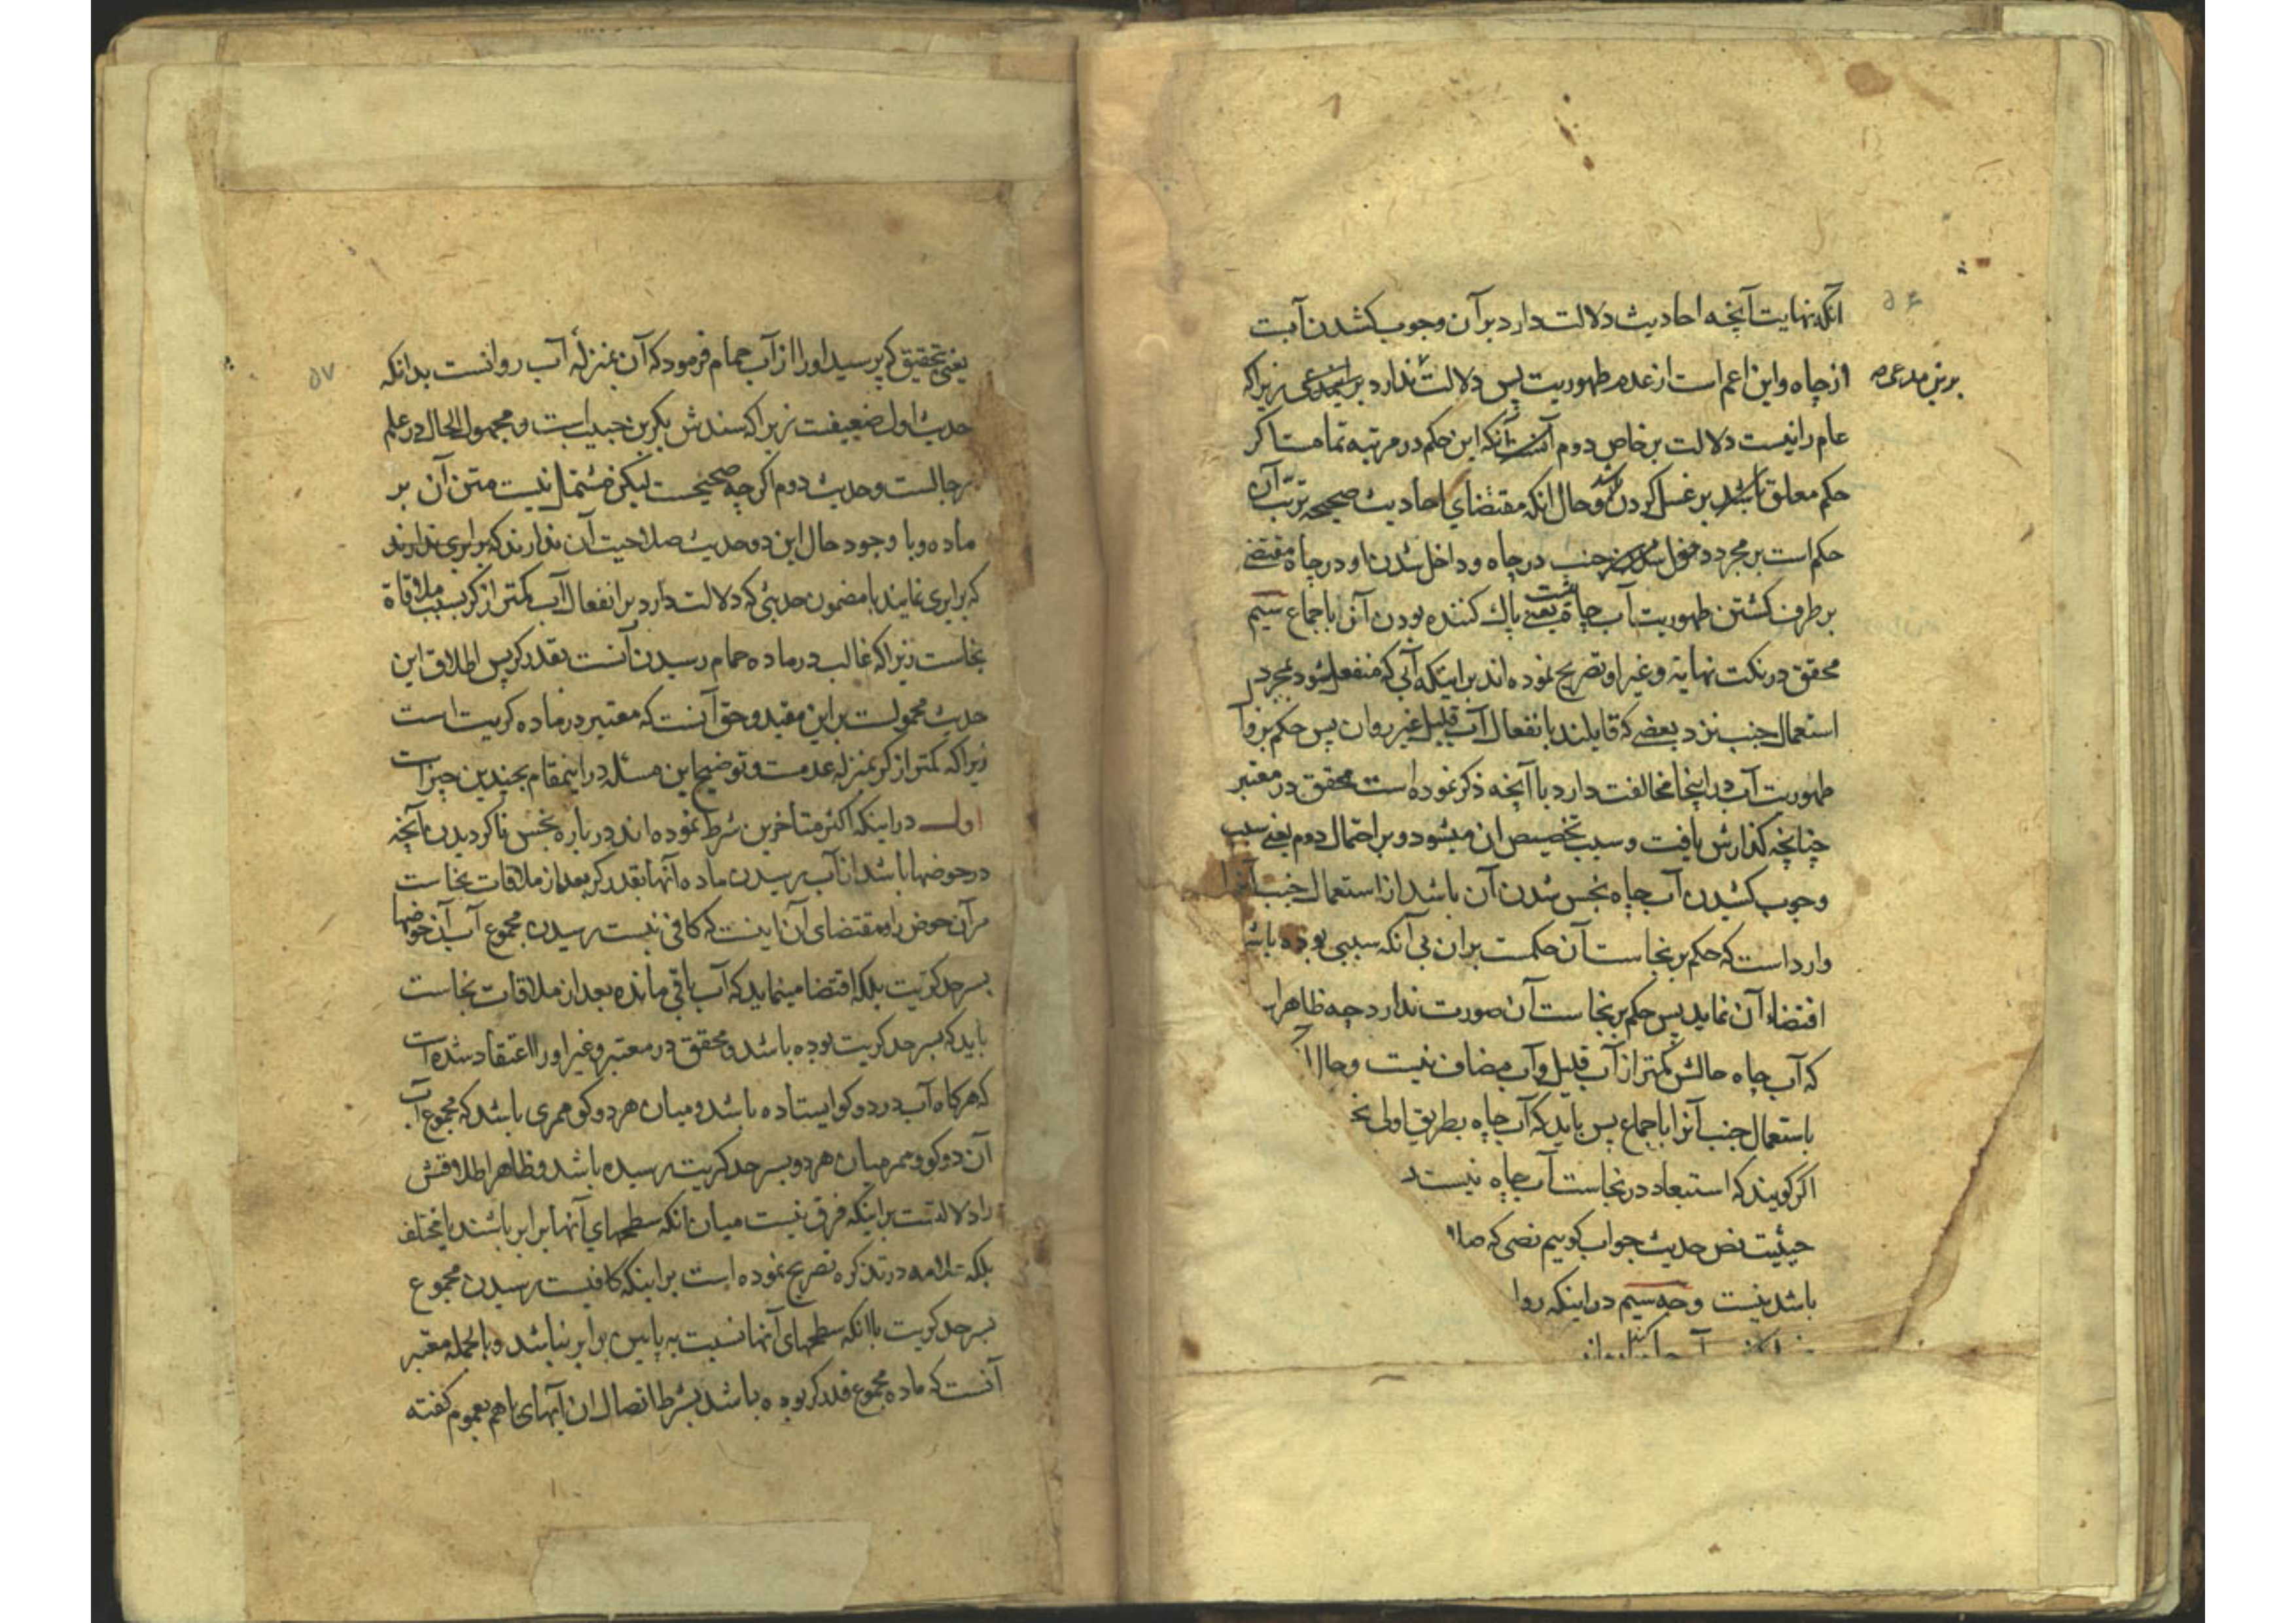 ۵۶
آنکه نهایت آنچه احادیث دلالت دارد بر آن وجوب کشدن آبست
از چاه و این اعم است از عدم طهوریت پس دلالت ندارد بر زیراکه
برین مدعی صح
عام را نیست دلالت بر خاص دوم آنکه این حکم در مرتبه تمامست اگر
حکم معلق باشد بر غسل کردن و حال انکه مقتضای احادیث صحیحه ترتب آن
حکم است بر مجرد جنب در چاه و داخل شدن او در چاه مقتضی
بر طرف کشتن طهوریت آب چاه یعنی پاک کننده بودن آن باجماع سیم
محقق در نکت نهایة و غیر او تصریح نموده اند بر اینکه آبی که منفعل شود بمجرد
استعمال جنب نزد بعضی که قایلند بانفعال آب قلیل غیر روان پس حکم بزوال
طهوریت آب در اینجا مخالفت دارد با آنچه ذکر نموده است محقق در معتبر
چنانچه گذارش یافت و سبب تخصیص ان میشود و بر احتمال دوم یعنی سبب
وجوب کشیدن آب چاه نجس شدن آن باشد از استعمال جنب آنرا
وارد است که حکم بر نجاست آن حکمست بران بی آنکه سببی بوده باشد
اقتضاء آن نماید پس حکم بر نجاست آن صورت ندارد چه ظاهر
که آب چاه حالش کمتر از آب قلیل و آب مضاف نیست و حال
باستعمال جنب آنرا باجماع پس باید که آب چاه بطریق اولی نج
اگر گویند که استبعاد در نجاست آب چاه نیست
حیثیت نص حدیث جواب گوییم نصی که
باشد نیست وجه سیم در اینکه روا
۵۷
یعنی بتحقیق که پرسید او را از آب حمام فرمود که آن بمنزلهٔ آب روانست بدانکه
حدیث اول ضعیفست زیراکه سندش بکر بن حبیب است و مجهول الحال در علم
رجالست و حدیث دوم اگرچه صحیحست لیکن مشتمل نیست متن آن بر
ماده و با وجود حال این دو حدیث صلاحیت آن ندارند که برابری ندارند
که برابری نمایند با مضمون حدیثی که دلالت دارد بر انفعال آب کمتر از کر بسبب ملاقاة
نجاست زیراکه غالب در ماده حمام رسیدن آنست بقدر کر پس اطلاق این
حدیث محمولست بر این مقید و حق آنست که معتبر در ماده کریت است
زیراکه کمتر از کر بمنزله عدمست و توضیح این مسئله در اینمقام بچندین چیز است
اول در اینکه اکثر متاخرین شرط نموده اند در باره نجس ناکردیدن آنچه
در حوضها باشد از آب رسیدن ماده آنها بقدر کر بعد از ملاقات نجاست
مر آن حوض را و مقتضای آن اینست که کافی نیست رسیدن مجموع آب آن حوضها
بسر حد کریت بلکه اقتضا مینماید که آب باقی مانده بعد از ملاقات نجاست
باید که بسر حد کریت بوده باشد و محقق در معتبر و غیر او را اعتقاد شده است
که هرکاه آب در دو کو ایستاده باشد و میان هر دو کو ممری باشد که مجموع آب
آن دو کو و ممر میان هر دو بسر حد کریت رسیده باشد و ظاهر اطلاقش
را دلالتست بر اینکه فرق نیست میان انکه سطحهای آنها برابر باشند یا مختلف
بلکه علامه در تذکره تصریح نموده است بر اینکه کافیست رسیدن مجموع
بسر حد کریت با انکه سطحهای آنها نسبت به پایین برابر نباشد و بالجمله معتبر
آنست که ماده مجموع قدر کر بوده باشد بشرط اتصال ان آبهای باهم بعموم گفته